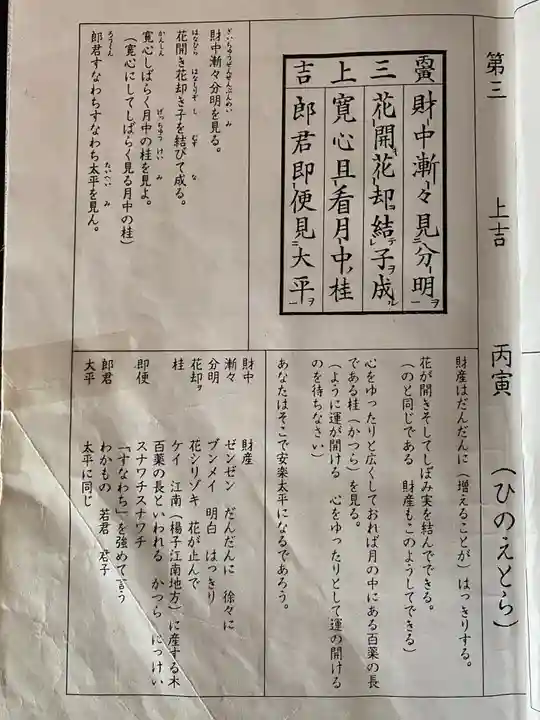 第三 上吉 丙寅 (ひのえとら)
吉上三
財中漸々見分明
花開花却結子成
寛心且看月中桂
郎君即便見大平
財中漸々分明を見る。
花開き花却き子を結びて成る。
寛心しばらく月中の桂を見よ。
(寛心にしてしばらく見る月中の桂)
郎君すなわちすなわち太平を見ん。
財産はだんだんに(増えることが)はっきりする。
花が開きそしてしぼみ実を結んでできる。
(のと同じである 財産もこのようしてできる)
心をゆったりと広くしておれば月の中にある百薬の長
である桂(かつら)を見る。
(ように運が開ける 心をゆったりとして運の開ける
のを待ちなさい)
あなたはそこで安楽太平になるであろう。
財中 財産
漸々 ゼンゼン だんだんに 徐々に
分明 ブンメイ 明白 はっきり
花却ヲ 花シリゾキ 花が止んで
桂 ケイ 江南(楊子江南地方)に産する木
百薬の長といわれる かつら にっけい
即便 スナワチスナワチ
「すなわち」を強めて言う
郎君 わかもの 若君 君子
大平 太平に同じ